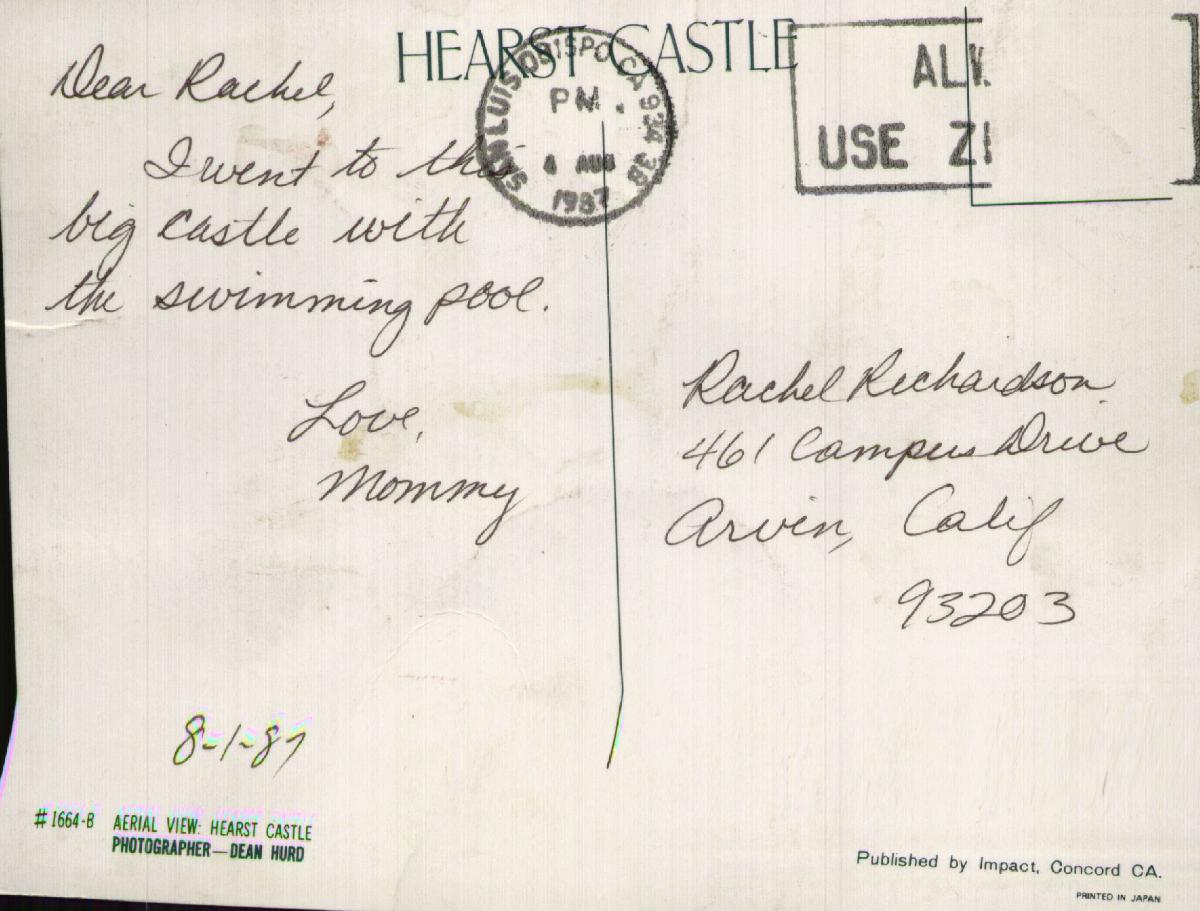 HEARST CASTLE
SAN LUIS OBISPO CA 934
PM
4 AUG
1987
USE
Dear Rachel,
I went to this
big castle with
the swimming pool.
Love,
Mommy
8-1-87
Rachel Richardson
461 Campus Drive
Arvin, Calif
93203
#1664-B AERIAL VIEW: HEARST CASTLE
PHOTOGRAPHER—DEAN HURD
Published by Impact, Concord CA.
PRINTED IN JAPAN